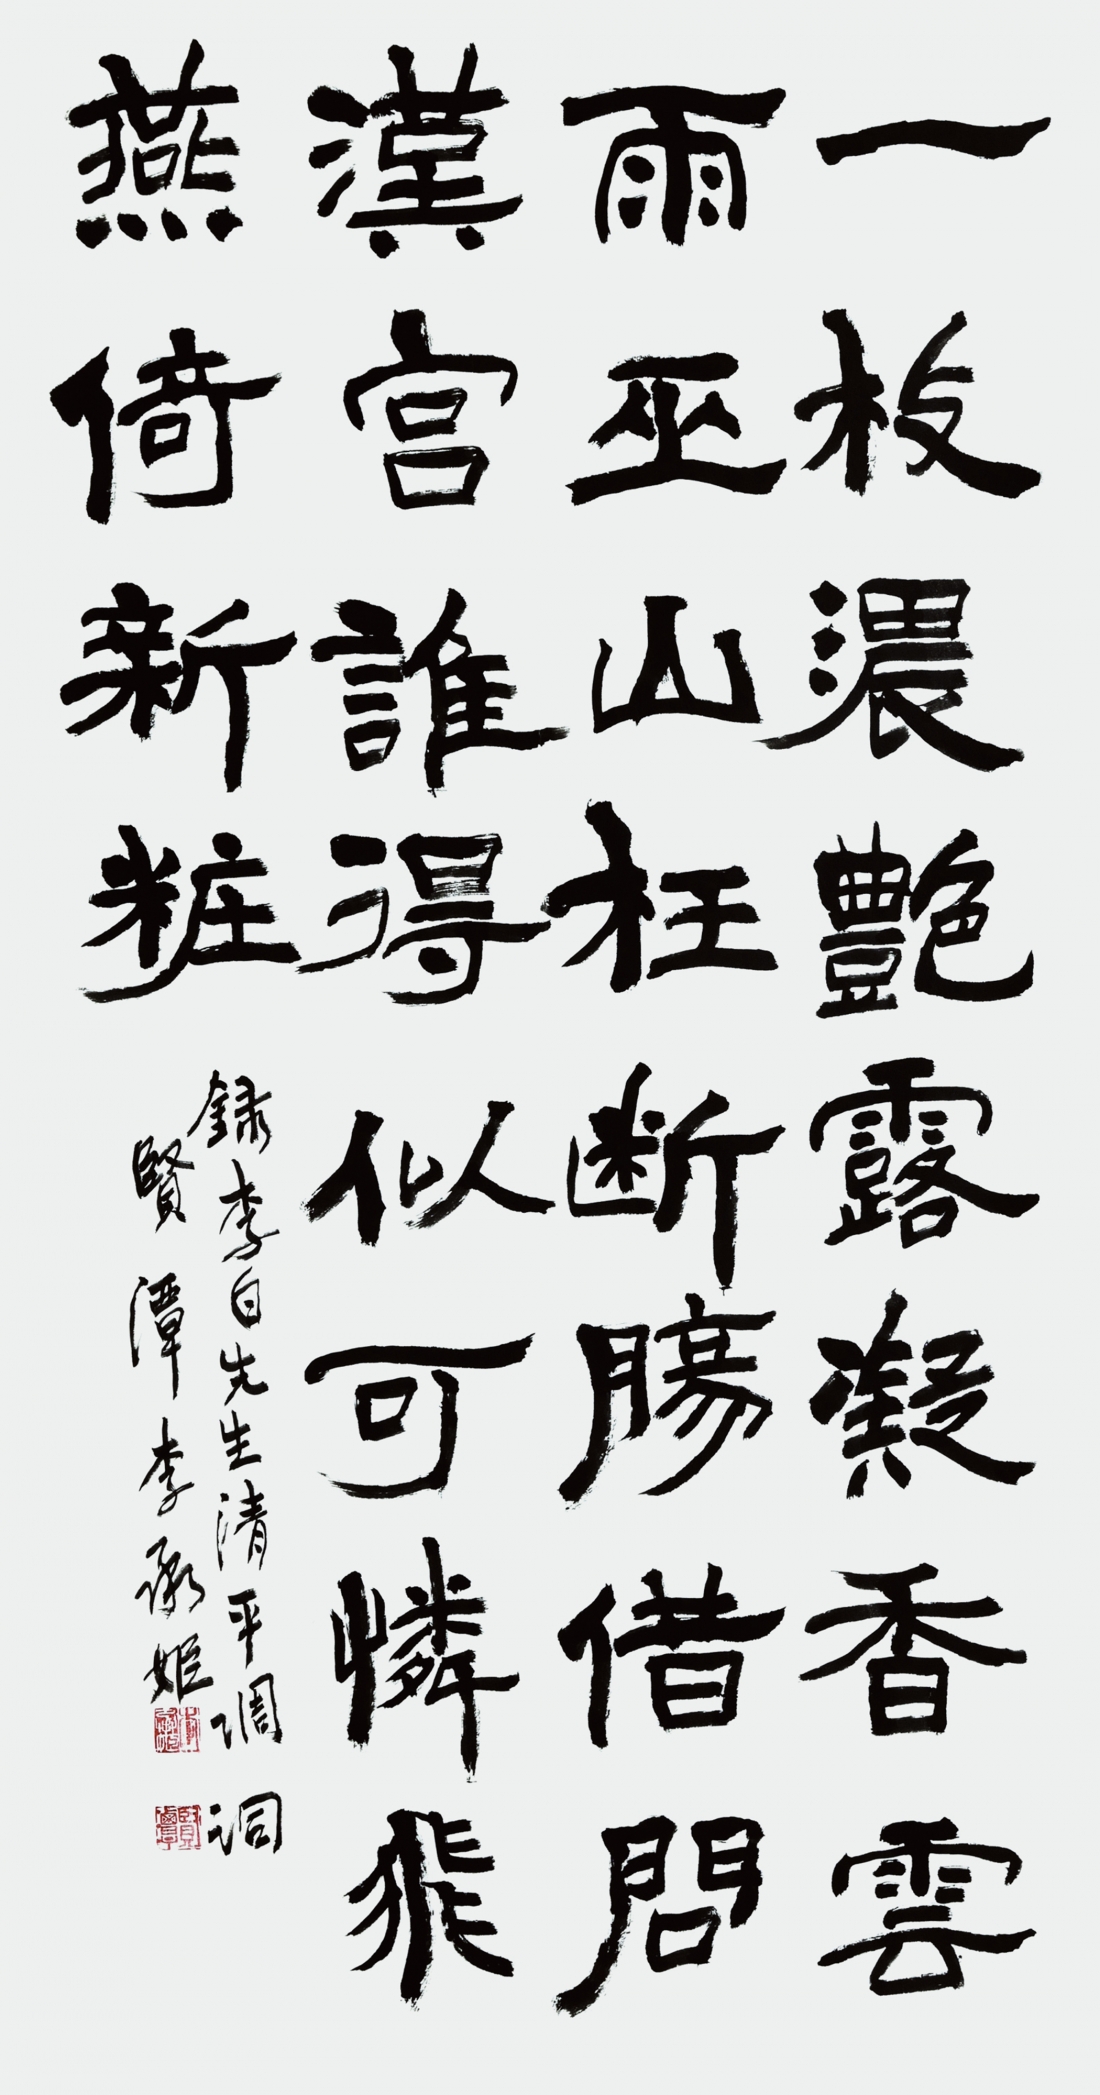 一枝濃艶露凝香雲
雨巫山枉断腸借問
漢宮誰得似可憐飛
燕倚新粧
録李白先生清平調詞
賢潭李承姬